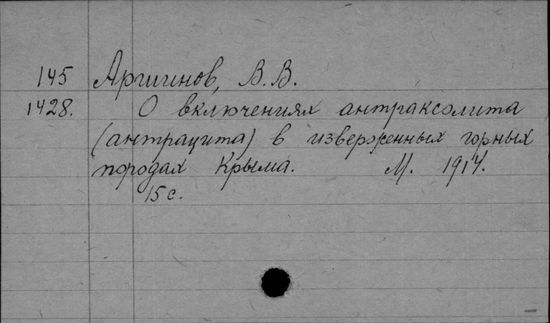 145 Аршинов, В. В.
1428. О включениях антраксолита
(антрацита) в изверженных горных
породах Крыма. М. 1914.
15 с.